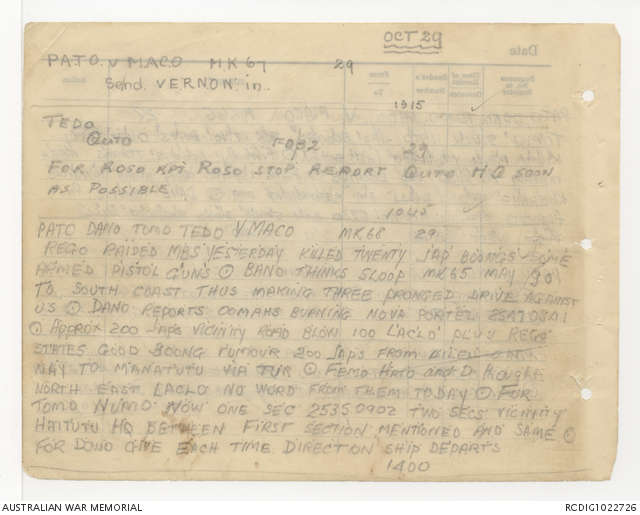 OCT 29
Date
PATO V MACO MK 67 29
Send VERNON in
1915
TEDO
QUTO FQB2 29
FOR ROSO RPT ROSO STOP REPORT QUTO HQ SOON
AS POSSIBLE
1045
PATO DANO TOMO TEDO V MACO MK 68 29
REGO RAIDED MBS YESTERDAY KILLED TWENTY JAP BOONGS SOME
ARMED PISTOL GUNS ⊙ BANO THINKS SLOOP MK 65 MAY GO
TO SOUTH COAST THUS MAKING THREE PRONGED DRIVE AGAINST
US ⊙ DANO REPORTS OOMAHS BURNING NOVA PORTEL
⊙ APPROX 200 JAPS VICINITY ROAD BLOW 100 LACLO REGO
STATES GOOD BOONG RUMOUR 200 JAPS FROM
MAY TO MANATUTU VIA TUR ⊙ and D
NORTH EAST LACLO NO WORD FROM THEM TODAY ⊙ FOR
TOMO NUMO NOW ONE SEC 2535 0902 TWO SECS VICINITY
HATUTU HQ BETWEEN FIRST SECTION MENTIONED AND SAME ⊙
FOR DONO GIVE EACH TIME DIRECTION SHIP DEPARTS
1400
AUSTRALIAN WAR MEMORIAL
RCDIG1022726